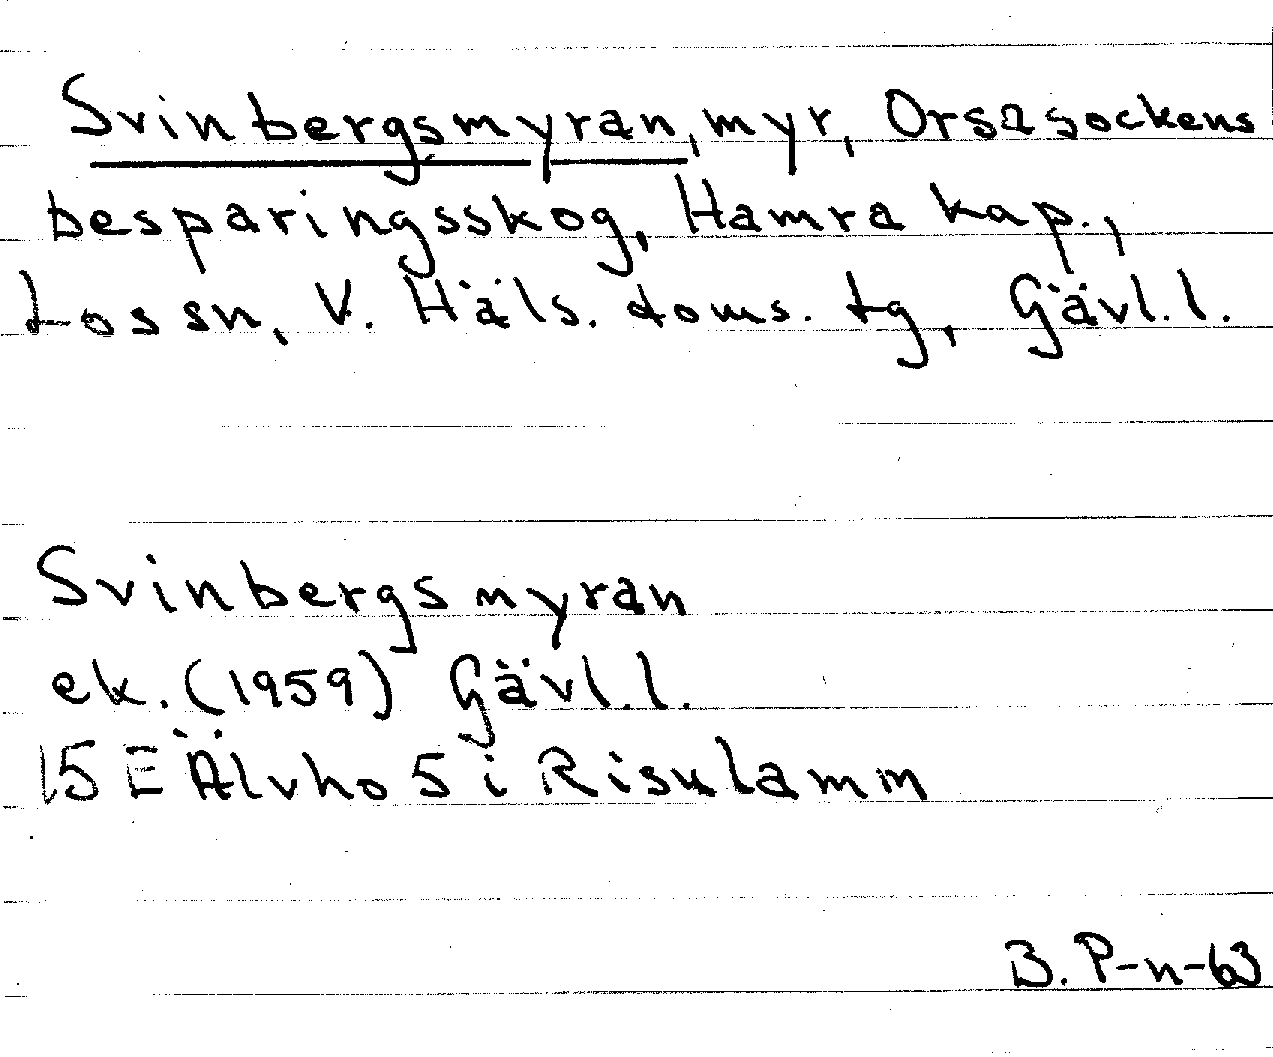 Svinbergsmyran, myr, Orsa sockens
besparingsskog, Hamra kap.,
Los sn, V. Häls. doms. tg, Gävl. l.
Svinbergsmyran
ek. (1959) Gävl. l.
15 E Älvho 5 i Risulamm
B. P-n-63